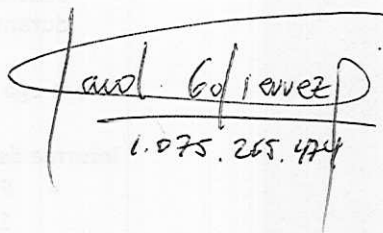 Carol Gutierrez
1.075.265.474